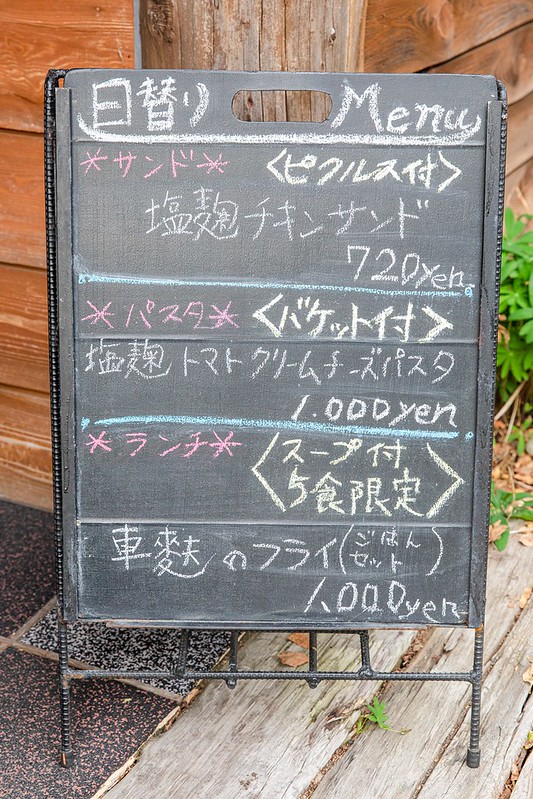 日替り Menu
*サンド* <ピクルス付>
塩麹チキンサンド
720yen
*パスタ* <バケット付>
塩麹トマトクリームチーズパスタ
1.000yen
*ランチ* <スープ付
5食限定>
車麩のフライ(ごはん
セット)
1.000yen